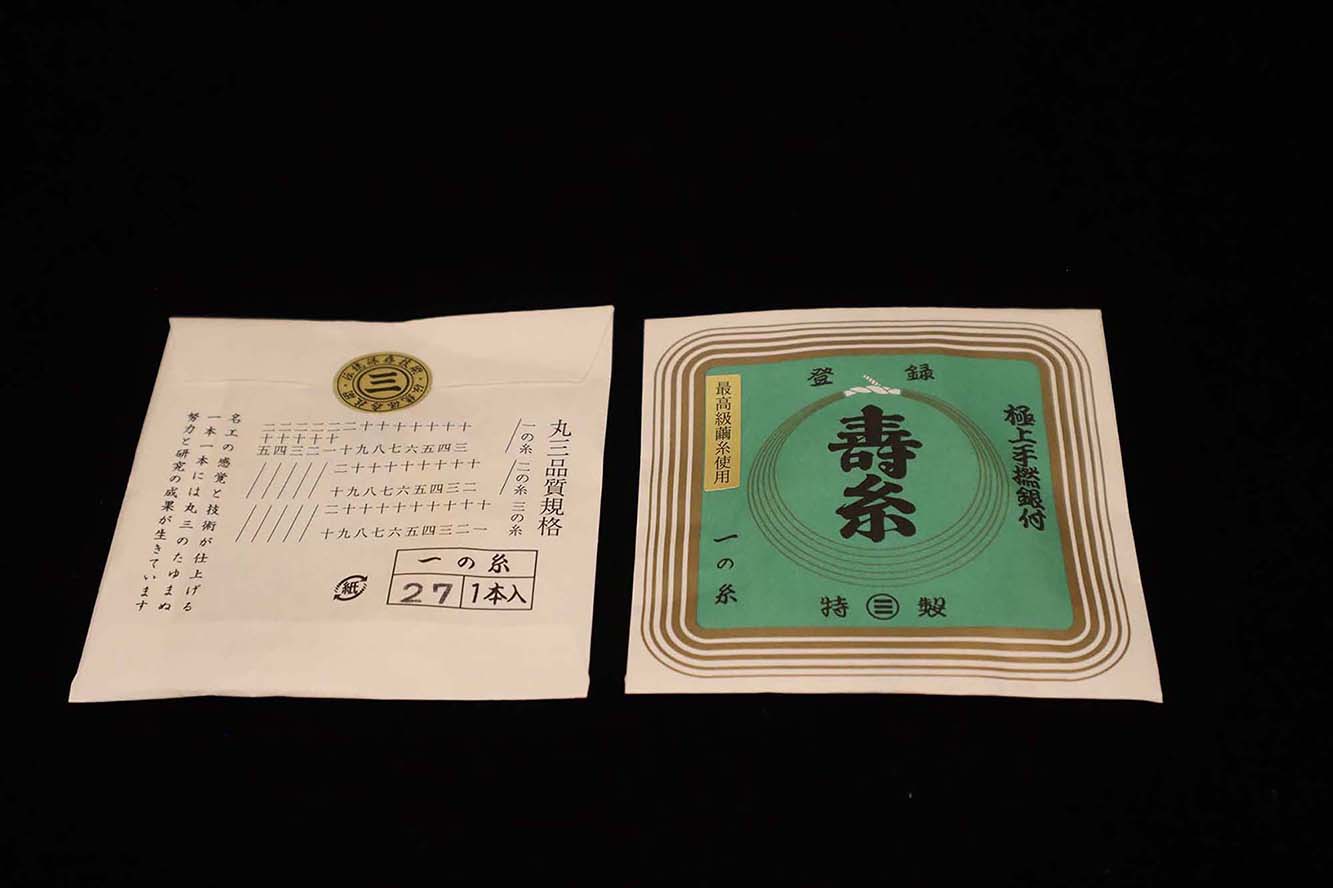 伝統保存技術・伝統保存技術・
三
丸三品質規格
一の糸 十三 十四 十五 十六 十七 十八 十九 二十 二十一 二十二 二十三 二十四 二十五
二の糸 十二 十三 十四 十五 十六 十七 十八 十九 二十
三の糸 十一 十二 十三 十四 十五 十六 十七 十八 十九 二十
名工の感覚と技術が仕上げる
一本一本には丸三のたゆまぬ
努力と研究の成果が生きています
紙
一の糸
27 1本入
登録
極上手撚銀付
寿糸
最高級繭糸使用
一の糸
特三製